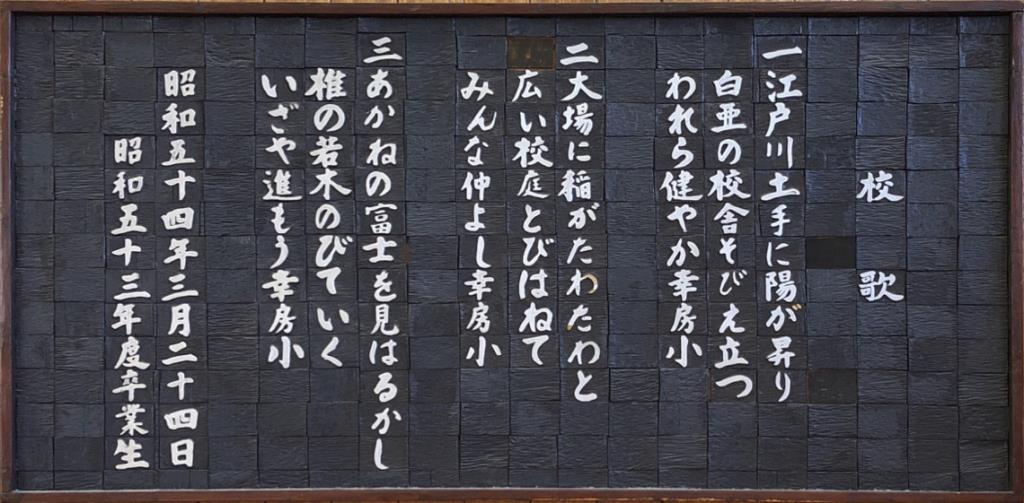 校歌
一江戸川土手に陽が昇り
白亜の校舎そびえ立つ
われら健やか幸房小
二大場に稲がたわたわと
広い校庭とびはねて
みんな仲よし幸房小
三あかねの富士を見はるかし
椎の若木のびていく
いざや進もう幸房小
昭和五十四年三月二十四日
昭和五十三年度卒業生